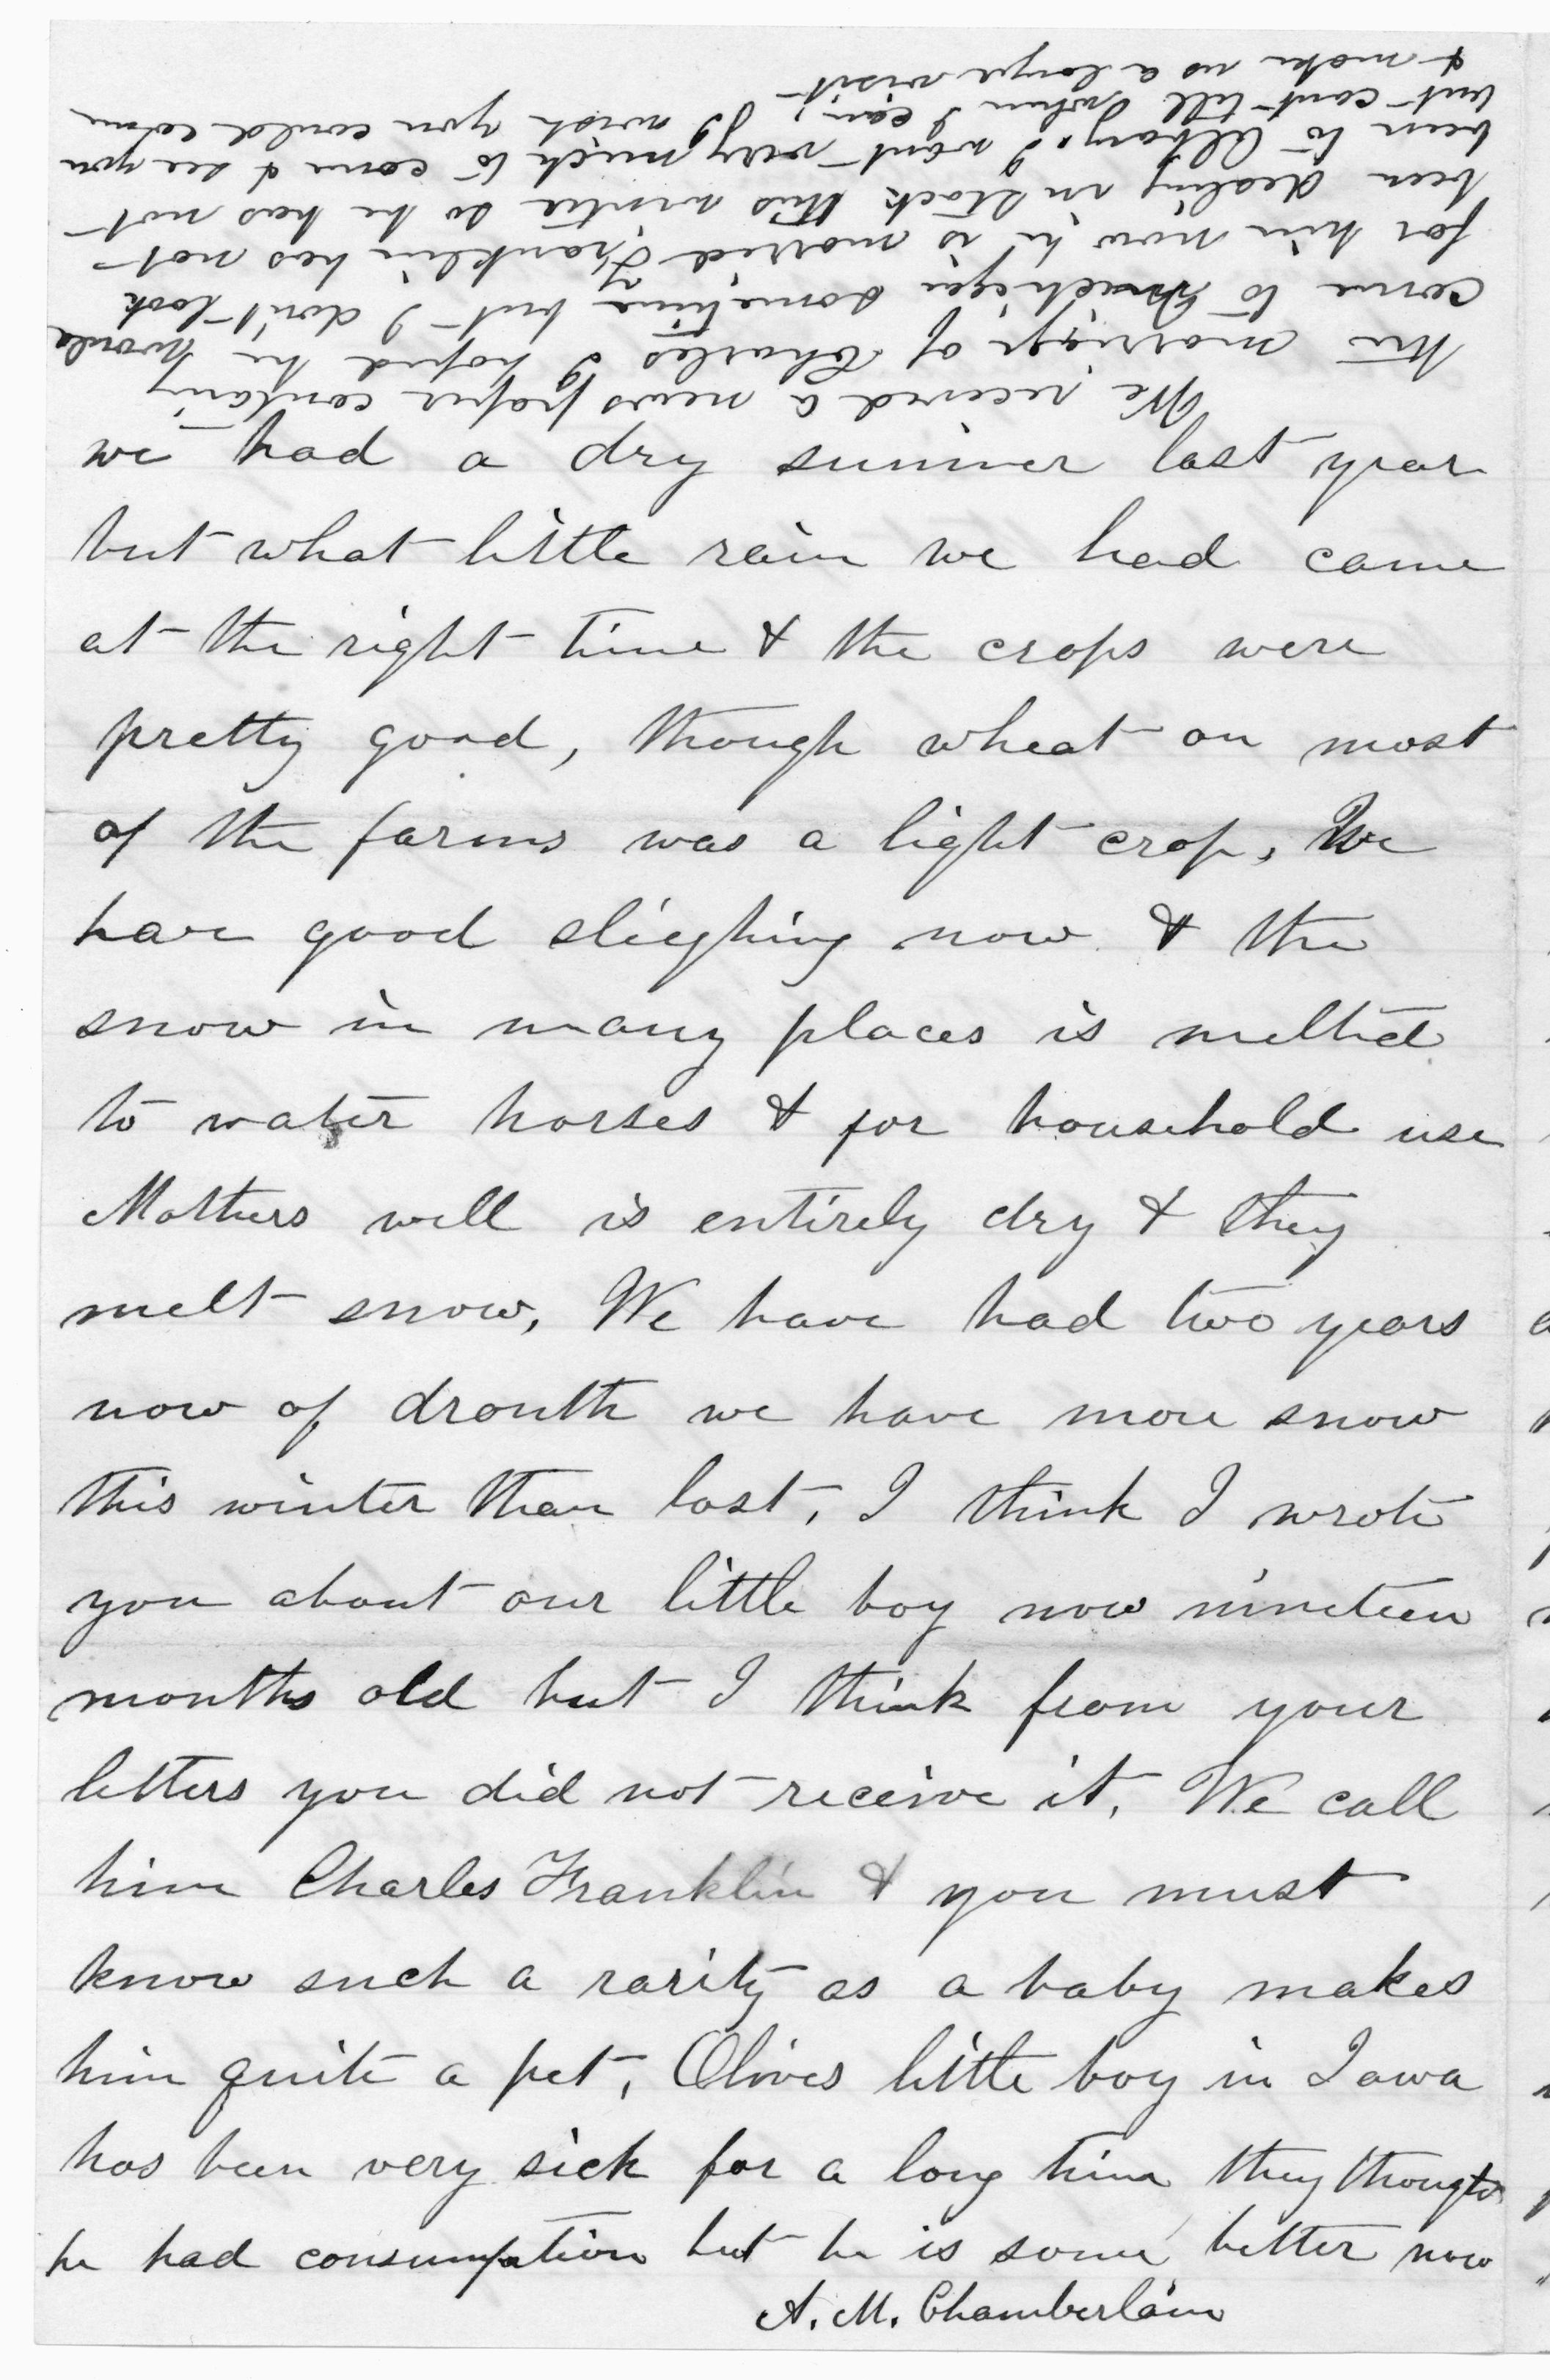 we had a dry summer last year
but what little rain we had came
at the right time & the crops were
pretty good, though wheat on most
of the farms was a light crop. We
have good sleighing now & the
snow in many places is melted
to water horses & for household use
Mothers well is entirely dry & they
melt snow, We have had two years
now of drouth we have more snow
this winter than last, I think I wrote
you about our little boy now nineteen
months old but I think from your
letters you did not receive it, We call
him Charles Franklin & you must
know such a rarity as a baby makes
him quite a pet, Olives little boy in Iowa
has been very sick for a long time they thought
he had consumption but he is some better now
A. M. Chamberlain
We received a news paper containing
the marriage of Charles I hoped he would
come to Michigan sometime but I don't look
for him now he is married Franklin has not
been dealing in stock this winter so he has not
been to Albany. I want very much to come & see you
but cant tell when I can, I wish you could come
& make us a longer visit